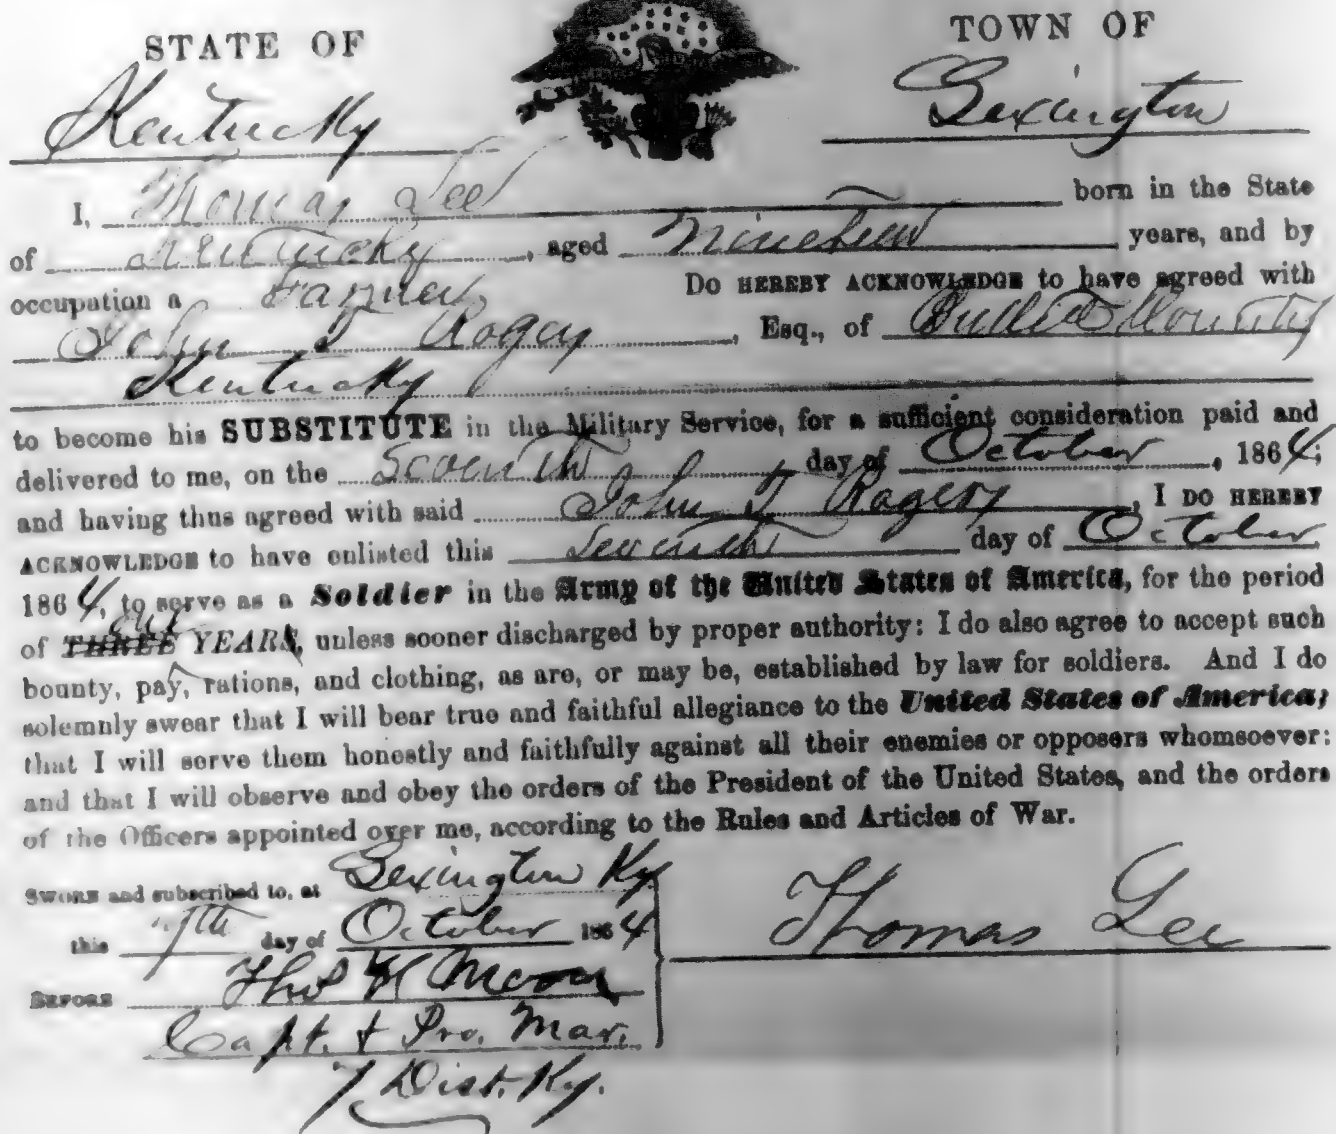 STATE OF
TOWN OF
Kentucky
Lexington
I, Thomas Lee born in the State
of Kentucky, aged nineteen years, and by
occupation a Farmer Do HEREBY ACKNOWLEDGE to have agreed with
John T Rogers, Esq., of County
Kentucky
to become his SUBSTITUTE in the Military Service, for a sufficient consideration paid and
delivered to me, on the Seventh day of October, 1864;
and having thus agreed with said John T Rogers, I DO HEREBY
ACKNOWLEDGE to have enlisted this Seventh day of October
1864, to serve as a Soldier in the Army of the United States of America, for the period
one
of THREE YEARS, unless sooner discharged by proper authority: I do also agree to accept such
bounty, pay, rations, and clothing, as are, or may be, established by law for soldiers. And I do
solemnly swear that I will bear true and faithful allegiance to the United States of America;
that I will serve them honestly and faithfully against all their enemies or opposers whomsoever:
and that I will observe and obey the orders of the President of the United States, and the orders
of the Officers appointed over me, according to the Rules and Articles of War.
SWORN and subscribed to, at Lexington Ky
this 7th day of October 1864
Thomas Lee
BEFORE Thos H Moore
Capt. & Pro. Mar.
7 Dist. Ky.